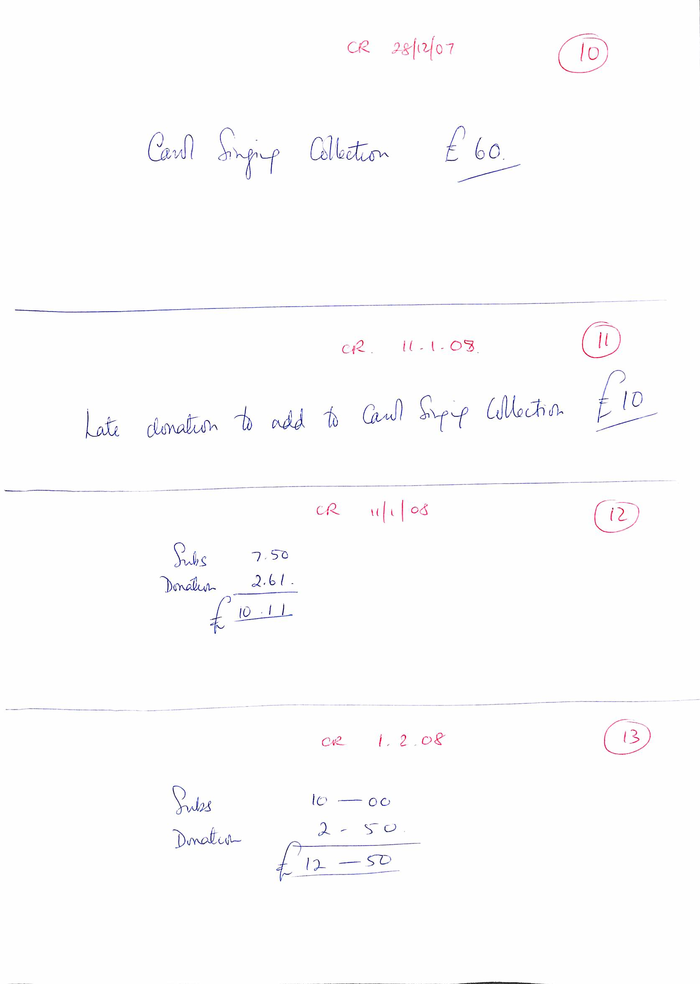 CR 28/12/07 10
Carol Singing Collection £60.
CR. 11.1.08. 11
Late donation to add to Carol Singing Collection £10
CR 11/1/08 12
Subs 7.50
Donation 2.61.
£ 10.11
CR 1.2.08 13
Subs 10 — 00
Donation 2 - 50.
£ 12 — 50